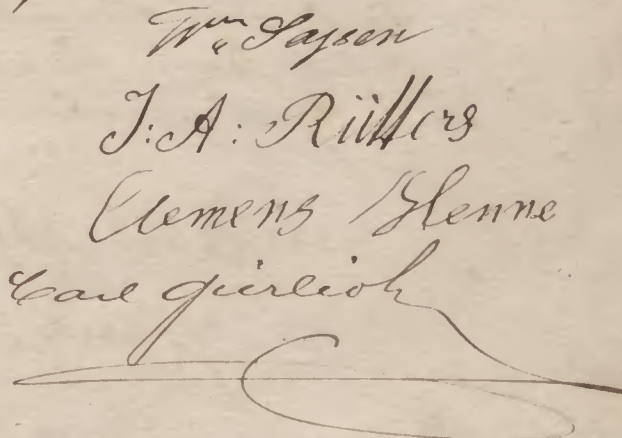 Wm Saysen
J. A. Rütters
Clemens Henne
Carl Gierlich